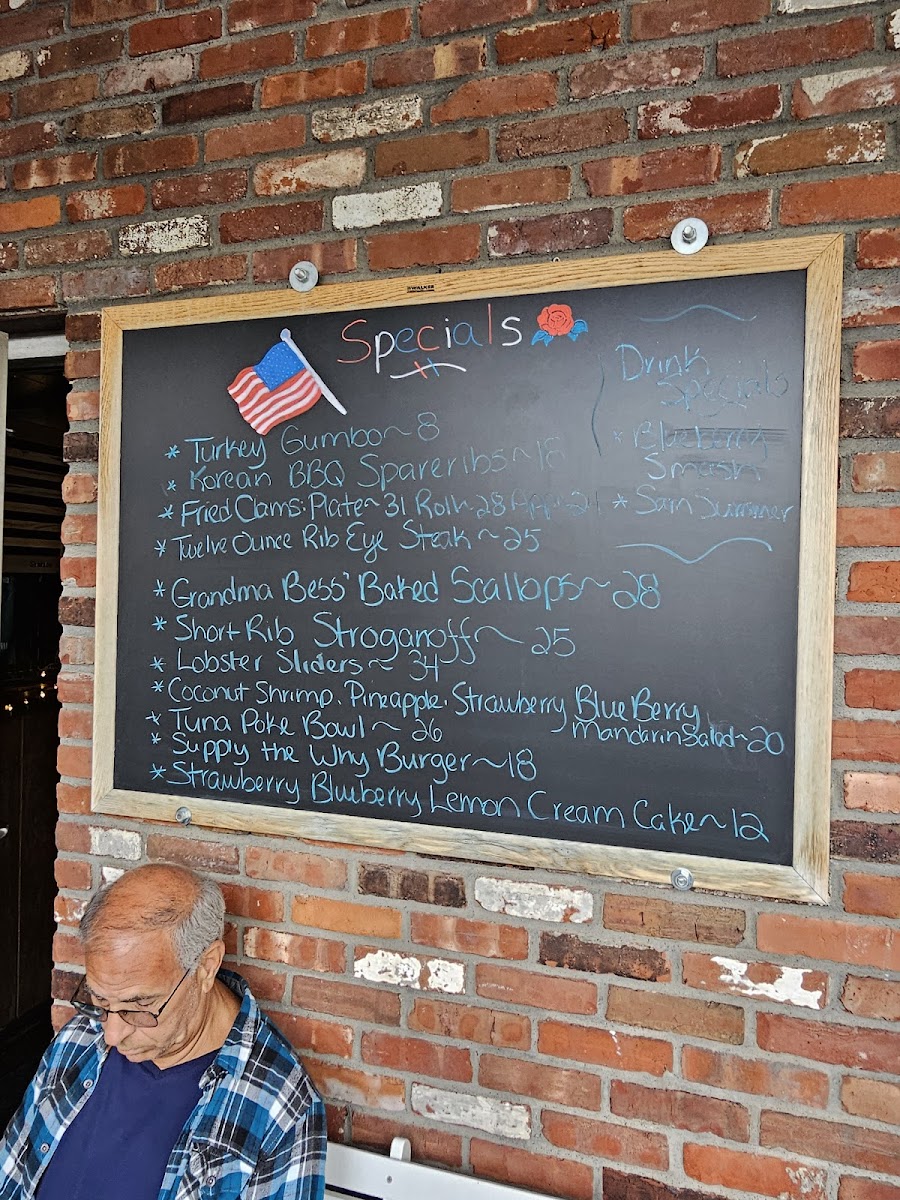 Specials
* Turkey Gumbo ~ 8
* Korean BBQ Spareribs ~
* Fried Clams: Plate ~ 31 Roll ~ 28 App ~ 21
* Twelve Ounce Rib Eye Steak ~ 25
* Grandma Bess' Baked Scallops ~ 28
* Short Rib Stroganoff ~ 25
* Lobster Sliders ~ 34
* Coconut Shrimp, Pineapple, Strawberry BlueBerry
Mandarin Salad ~ 20
* Tuna Poke Bowl ~ 26
* Supply the Why Burger ~ 18
* Strawberry Blueberry Lemon Cream Cake ~ 12
Drink
Specials
* Blueberry
Smash
* Sam Summer